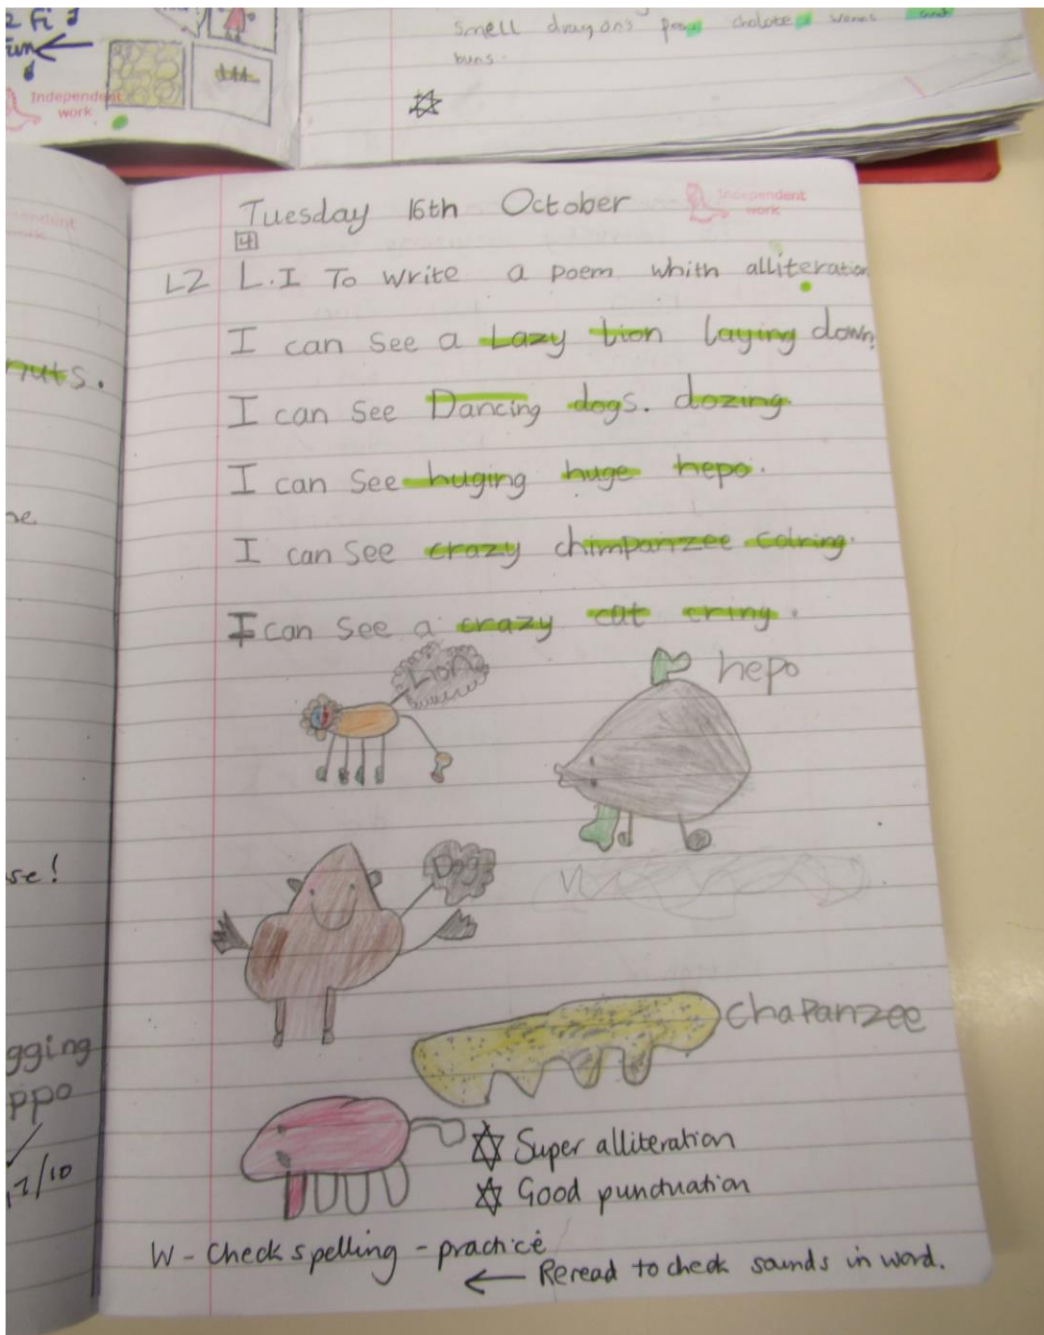 Fi
fun
Independent
work
smell dragons cholote worms and
buns.
nuts.
se!
gging
ppo
1/10
Tuesday 16th October
Independent
work
4
LZ L.I To write a poem whith alliteration
I can see a Lazy lion laying down.
I can see Dancing dogs. dozing
I can see huging huge hepo.
I can see crazy chimpanzee colring.
I can see a crazy cat cring.
Lion
hepo
Dog
chapanzee
Super alliteration
Good punctuation
W - Check spelling - practice
← Reread to check sounds in word.